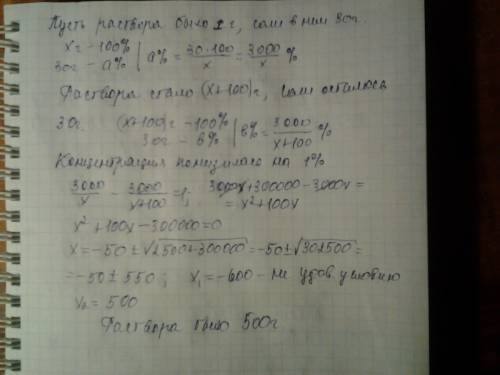 Пусть раствора было x г, соли в нем 30г.
xг – 100%
30г – a% | a% = 30·100/x = 3000/x %
Раствора стало (x+100)г, соли осталось
30г. (x+100)г – 100%
30г – b% | b% = 3000/x+100 %
Концентрация понизилась на 1%
3000/x – 3000/x+100 = 1; 3000x+300000–3000x=
= x²+100x
x²+100x–300000=0
x=–50±√2500+300000=–50±√302500=
=–50±550; x₁=–600 – не удов. условию
x₂=500
Раствора было 500г